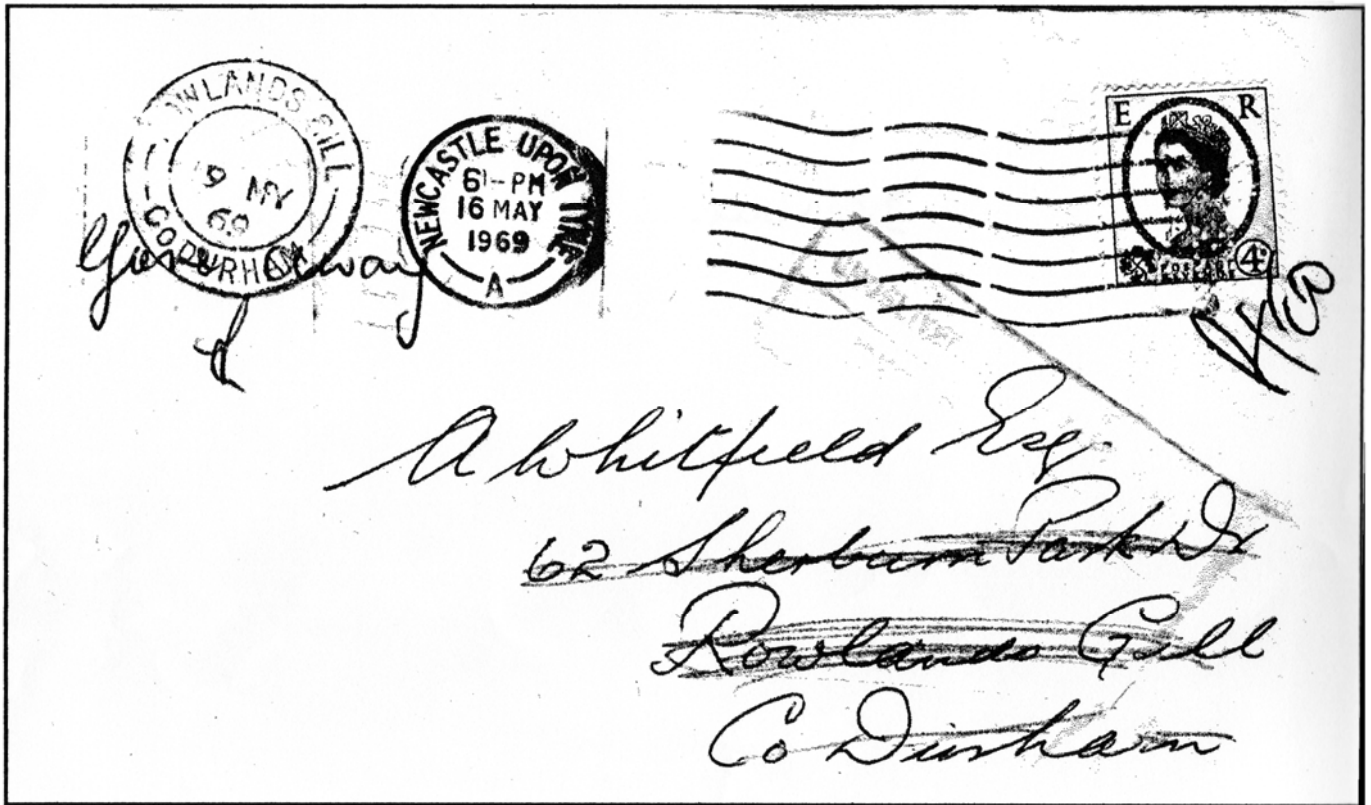 ROWLANDS GILL
19 MY
69
CO DURHAM
NEWCASTLE UPON TYNE
61-PM
16 MAY
1969
A
E R
POSTAGE
4D
Gone away
A Whitfield Esq.
62 Sherburn Park Dr
Rowlands Gill
Co Durham